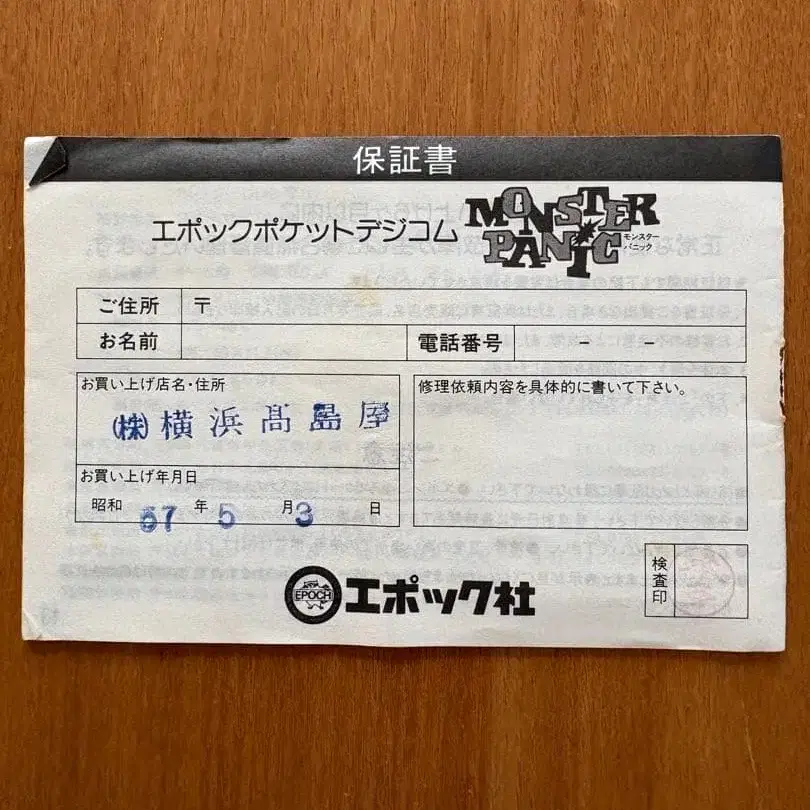 保証書
エポックポケットデジコム MONSTER PANIC モンスターパニック
ご住所 〒
お名前 電話番号 － －
お買い上げ店名・住所
㈱横浜髙島屋
お買い上げ年月日
昭和 57 年 5 月 3 日
修理依頼内容を具体的に書いて下さい。
検査印
EPOCH エポック社